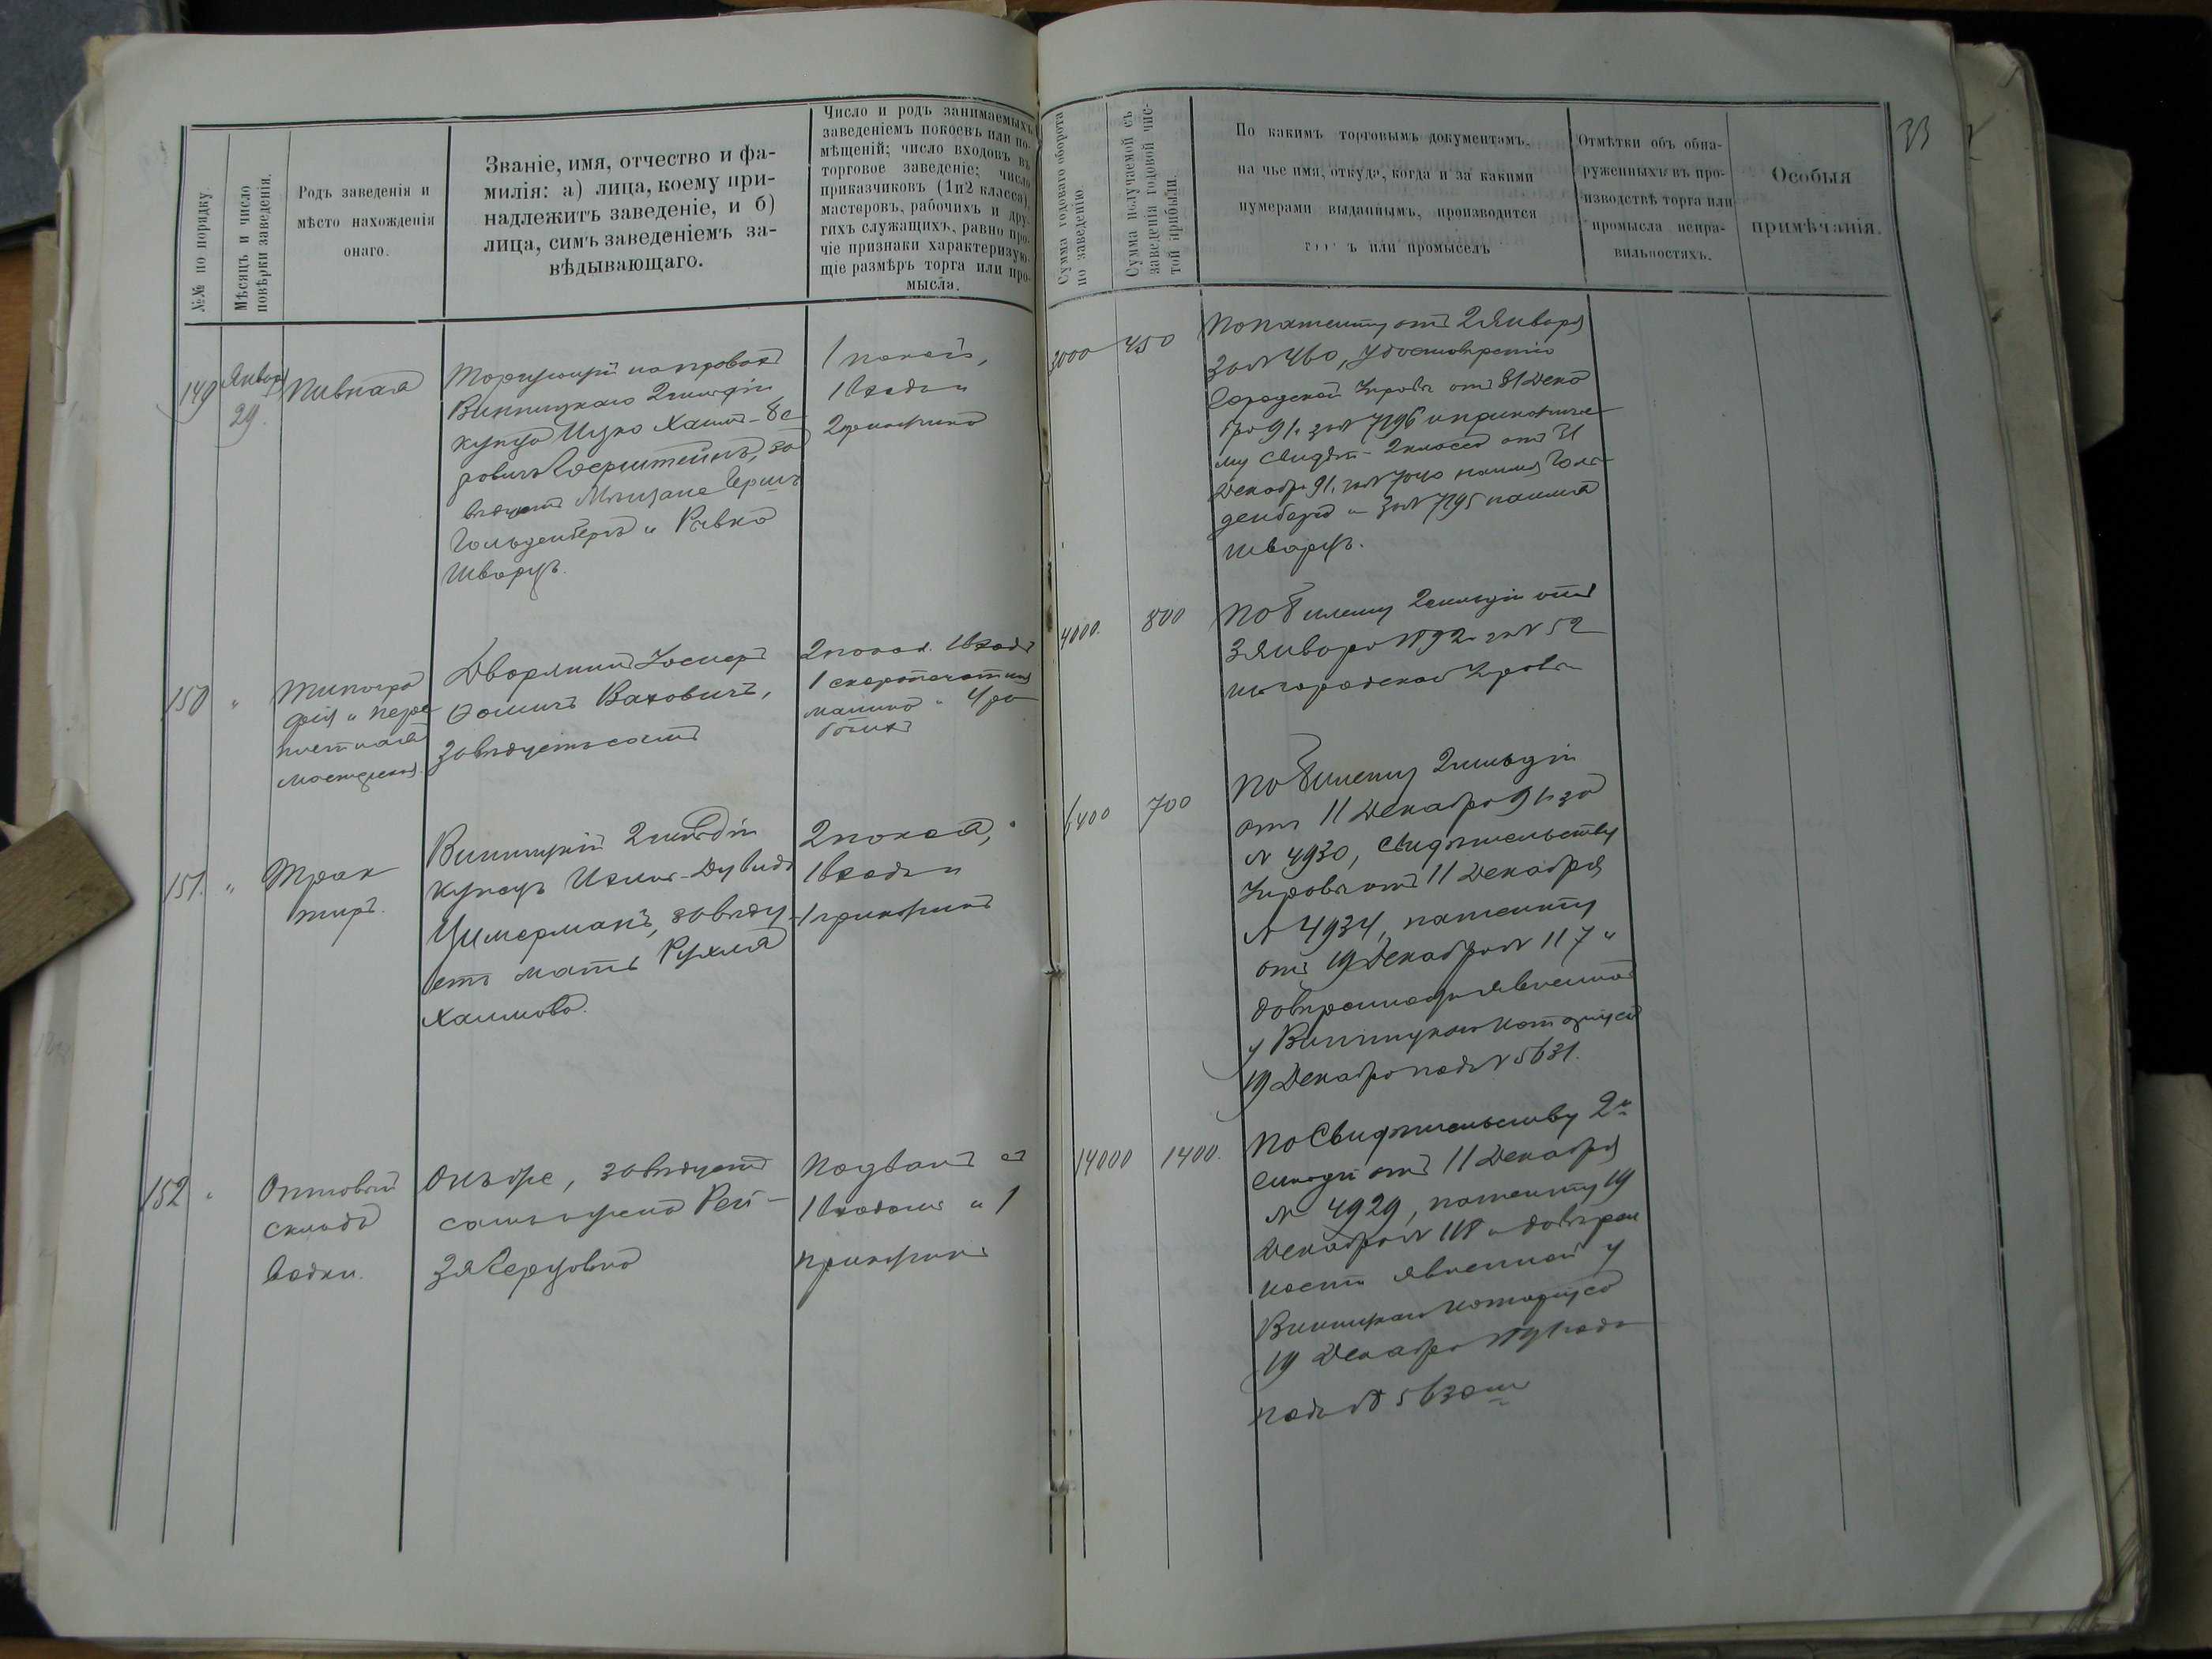 33
№№ по порядку.
Мѣсяцъ и число
повѣрки заведенія.
Родъ заведенія и
мѣсто нахожденія
онаго.
Званіе, имя, отчество и фа-
милія: а) лица, коему при-
надлежитъ заведеніе, и б)
лица, симъ заведеніемъ за-
вѣдывающаго.
Число и родъ занимаемыхъ
заведеніемъ покоевъ или по-
мѣщеній; число входовъ въ
торговое заведеніе; число
приказчиковъ (1и2 класса),
мастеровъ, рабочихъ и дру-
гихъ служащихъ, равно про-
чіе признаки характеризую-
щіе размѣръ торга или про-
мысла.
Сумма годоваго оборота
по заведенію.
Сумма получаемой съ
заведенія годовой чис-
той прибыли.
По какимъ торговымъ документамъ,
на чье имя, откуда, когда и за какими
нумерами выданнымъ, производится
ъ или промыселъ
Отмѣтки объ обна-
руженныхъ въ про-
изводствѣ торга или
промысла непра-
вильностяхъ.
Особыя
примѣчанія.
149
Января
29.
Пивная
Торгующій на правахъ
Винницкаго 2 гильдіи
купца Ицко Хаим-
за
вѣдуетъ Мѣщане Герш
Гольденберъ и Ривка
Шварцъ.
1 покой,
1 входъ и
2 приказчика
3000
450
По патенту отъ 2 Января
за № 460, удостовѣренію
Городской Управы отъ 31 Дека
бря 91 г. за № 7196 и приказчичье
му Свидѣт. 2 класса отъ 31
Декабр. 91 г. за № 7040 на имя Голь
денберга и за № 7195 на имя
Шварцъ.
150
"
Типогра
фія и пере
плетная
мастерская.
Дворянинъ Іосифъ
Фомичъ Вахович,
завѣдуетъ самъ
2 покоя. 1 входъ
1 скоропечатная
машина и 4 ра
бочихъ
4000.
800
По билету 2 гильдіи отъ
3 Января 1892 г. за № 52
изъ городской Управы
151.
"
Трак
тиръ.
Винницкій 2 гильдіи
купецъ Ихил-Дувидъ
Цимерманъ, завѣду
етъ мать Рухля
Хаимова.
2 покоя,
1 входъ и
1 приказчикъ
1400
700
По билету 2 гильдіи
отъ 11 Декабря 91 г. за
№ 4930, Свидѣтельству
Управы отъ 11 Декабря
№ 4934, патенту
отъ 19 Декабря № 117 и
довѣренности явленной
у Винницкаго Нотаріуса
19 Декабря подъ № 5631.
152
"
Оптовый
складъ
водки.
Онъ же, завѣдуетъ
самъ и жена Рей-
зя Герцовна
Подвалъ съ
1 входомъ и 1
приказчик
14000
1400.
По Свидѣтельству 2й
гильдіи отъ 11 Декабря
№ 4929, патенту 19
Декабря № 118 и довѣрен
ности явленной у
Винницкаго Нотаріуса
19 Декабря 1891 года
подъ № 5630мъ